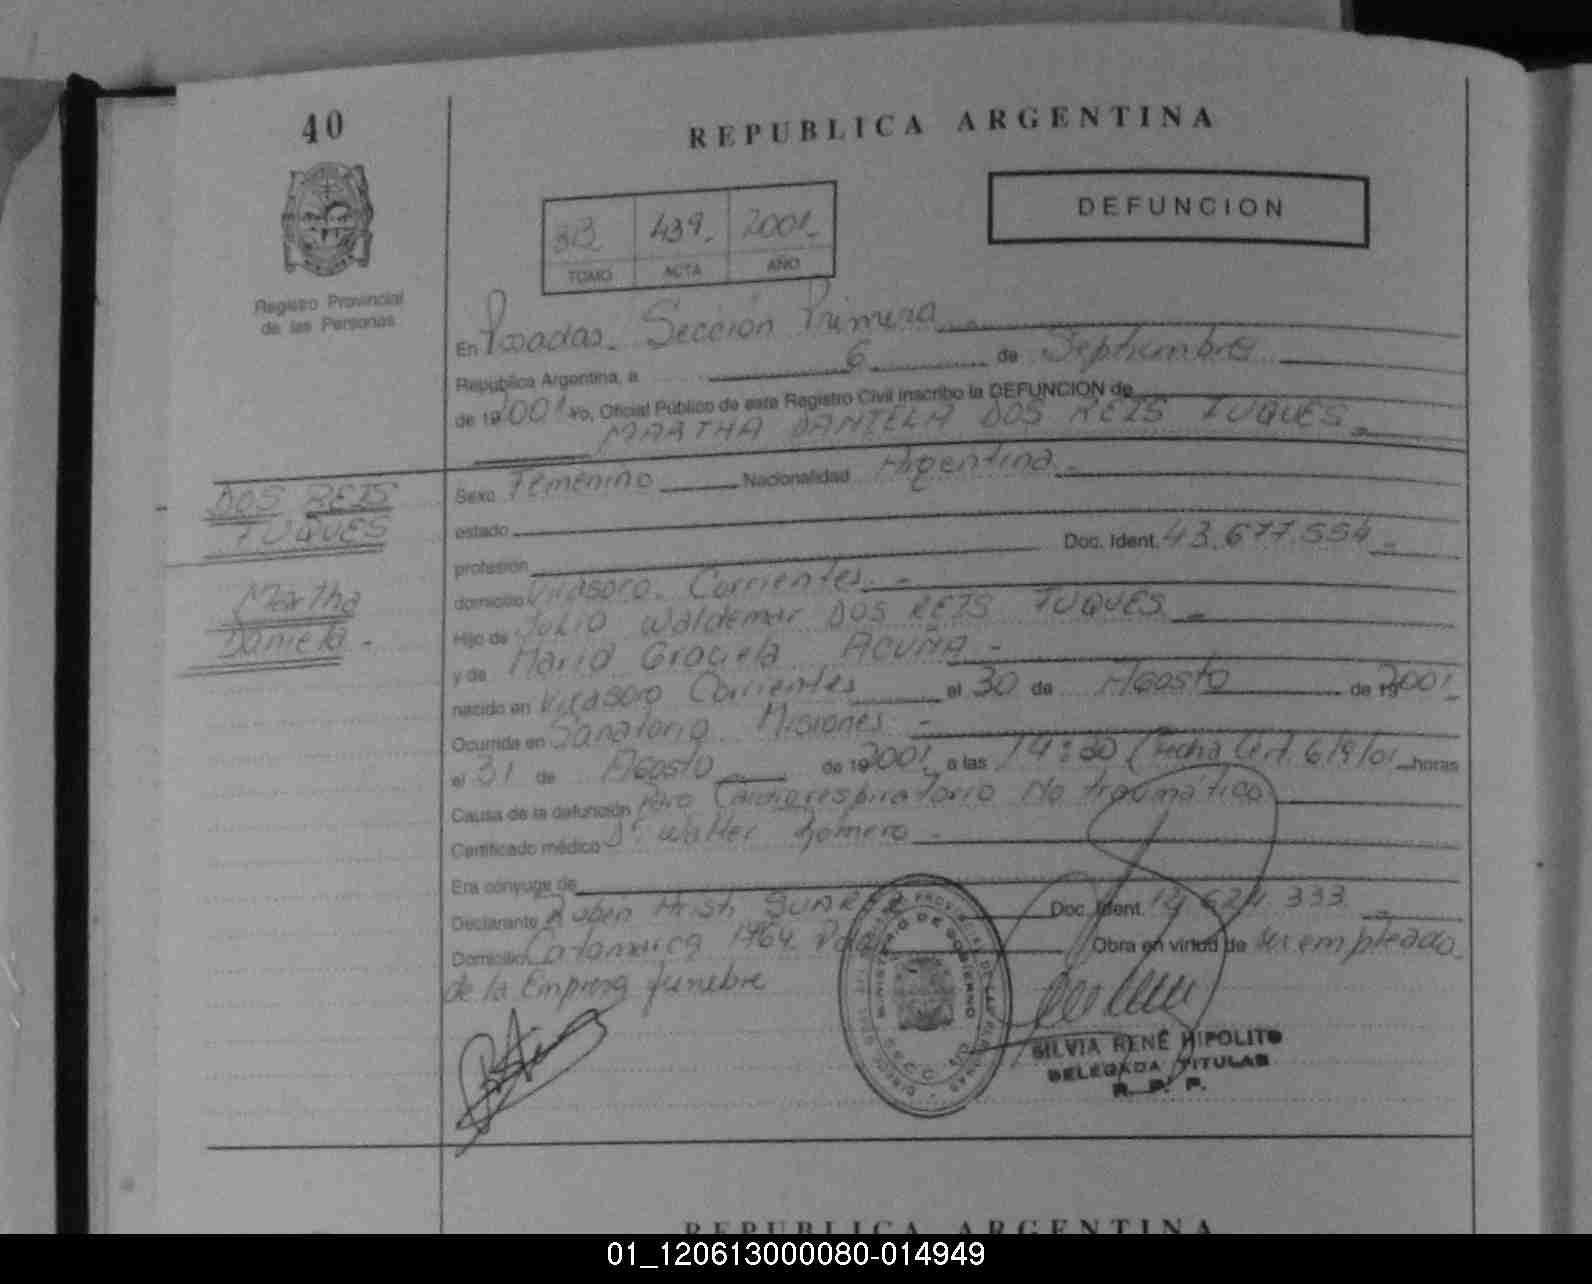 40
REPUBLICA ARGENTINA
DEFUNCION
3B 439. 2001.
TOMO ACTA AÑO
Registro Provincial
de las Personas
En Posadas. Sección Primera
República Argentina, a 6 de Septiembre
de 19 2001 Yo, Oficial Público de este Registro Civil inscribo la DEFUNCION de
MARTHA DANIELA DOS REIS TUQUES
DOS REIS
TUQUES
Martha
Daniela -
Sexo Femenino Nacionalidad Argentina.-
estado
profesión Doc. Ident. 43.677.554.-
domicilio Virasoro. Corrientes.-
Hijo de Julio Waldemar DOS REIS TUQUES -
y de María Graciela ACUÑA -
nacido en Virasoro Corrientes el 30 de Agosto de 19 2001.
Ocurrida en Sanatorio Misiones -
el 31 de Agosto de 19 2001, a las 14:30 (Fecha Cert. 6/9/01 horas
Causa de la defunción Paro Cardiorespiratorio No traumático
Certificado médico Dr. Walter Romero -
Era cónyuge de
Declarante Ruben Doc. Ident. 333
Domicilio Catamarca 1764. Obra en virtud de ser empleado
de la Empresa funebre
MINISTERIO DE GOBIERNO
SILVIA RENÉ HIPOLITO
DELEGADA TITULAR
R. P. P.
REPUBLICA ARGENTINA
01_120613000080-014949